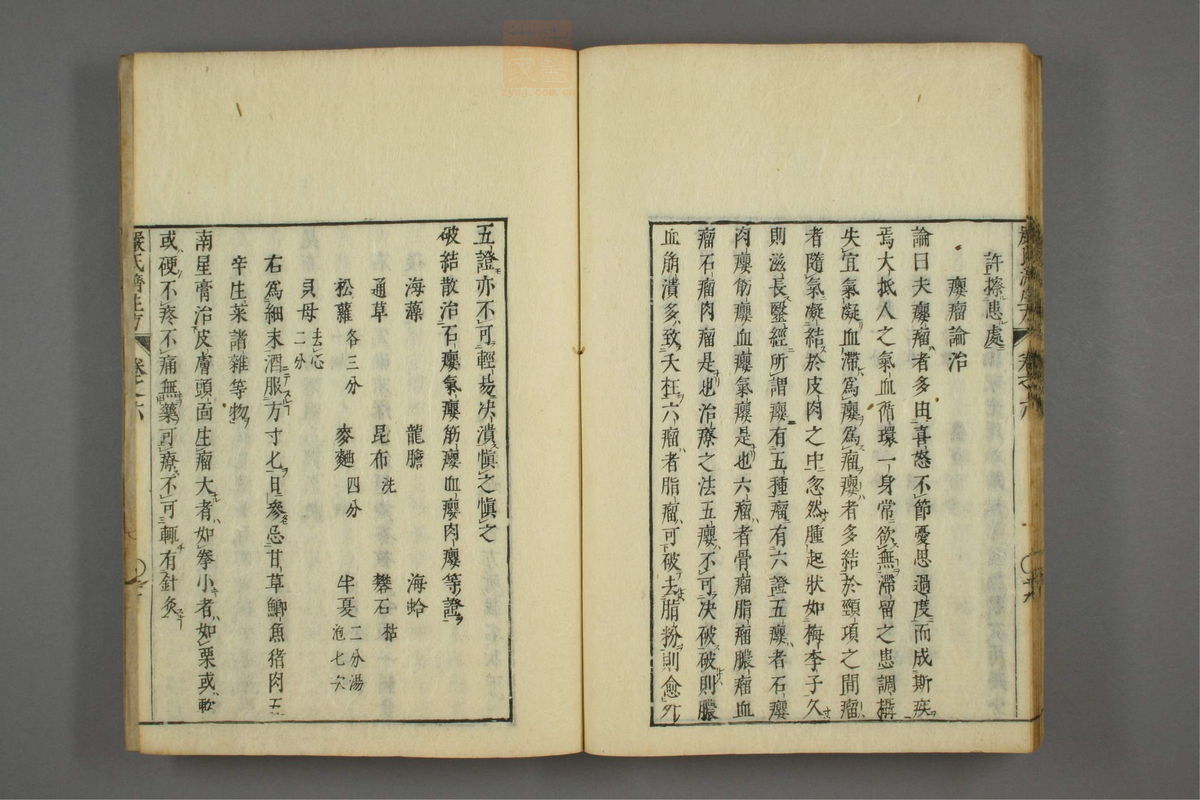 許擦患處
癭瘤論治
論曰夫癭瘤者多由喜怒不節憂思過度而成斯疾
焉大抵人之氣血循環一身常欲無滯留之患調攝
失宜氣凝血滯為癭為瘤癭者多結於頸項之間瘤
者隨氣凝結於皮肉之中忽然腫起狀如梅李子久
則滋長醫經所謂癭有五種瘤有六證五癭者石癭
肉癭筋癭血癭氣癭是也六瘤者骨瘤脂瘤膿瘤血
瘤石瘤肉瘤是也治療之法五癭不可决破破則膿
血崩潰多致夭枉六瘤者脂瘤可破去脂粉則愈外
五證亦不可輕易决潰慎之慎之
破結散治石癭氣癭筋癭血癭肉癭等證
海藻 龍膽 海蛤
通草 昆布洗 礬石枯
松蘿各三分 麥麯四分 半夏二分湯泡七次
貝母去心二分
右為細末酒服方寸匕日參忌甘草鯽魚猪肉五
辛生菜諸雜等物
南星膏治皮膚頭面生瘤大者如拳小者如栗或軟
或硬不疼不痛無藥可療不可輒有針灸
嚴氏濟生方 卷之六